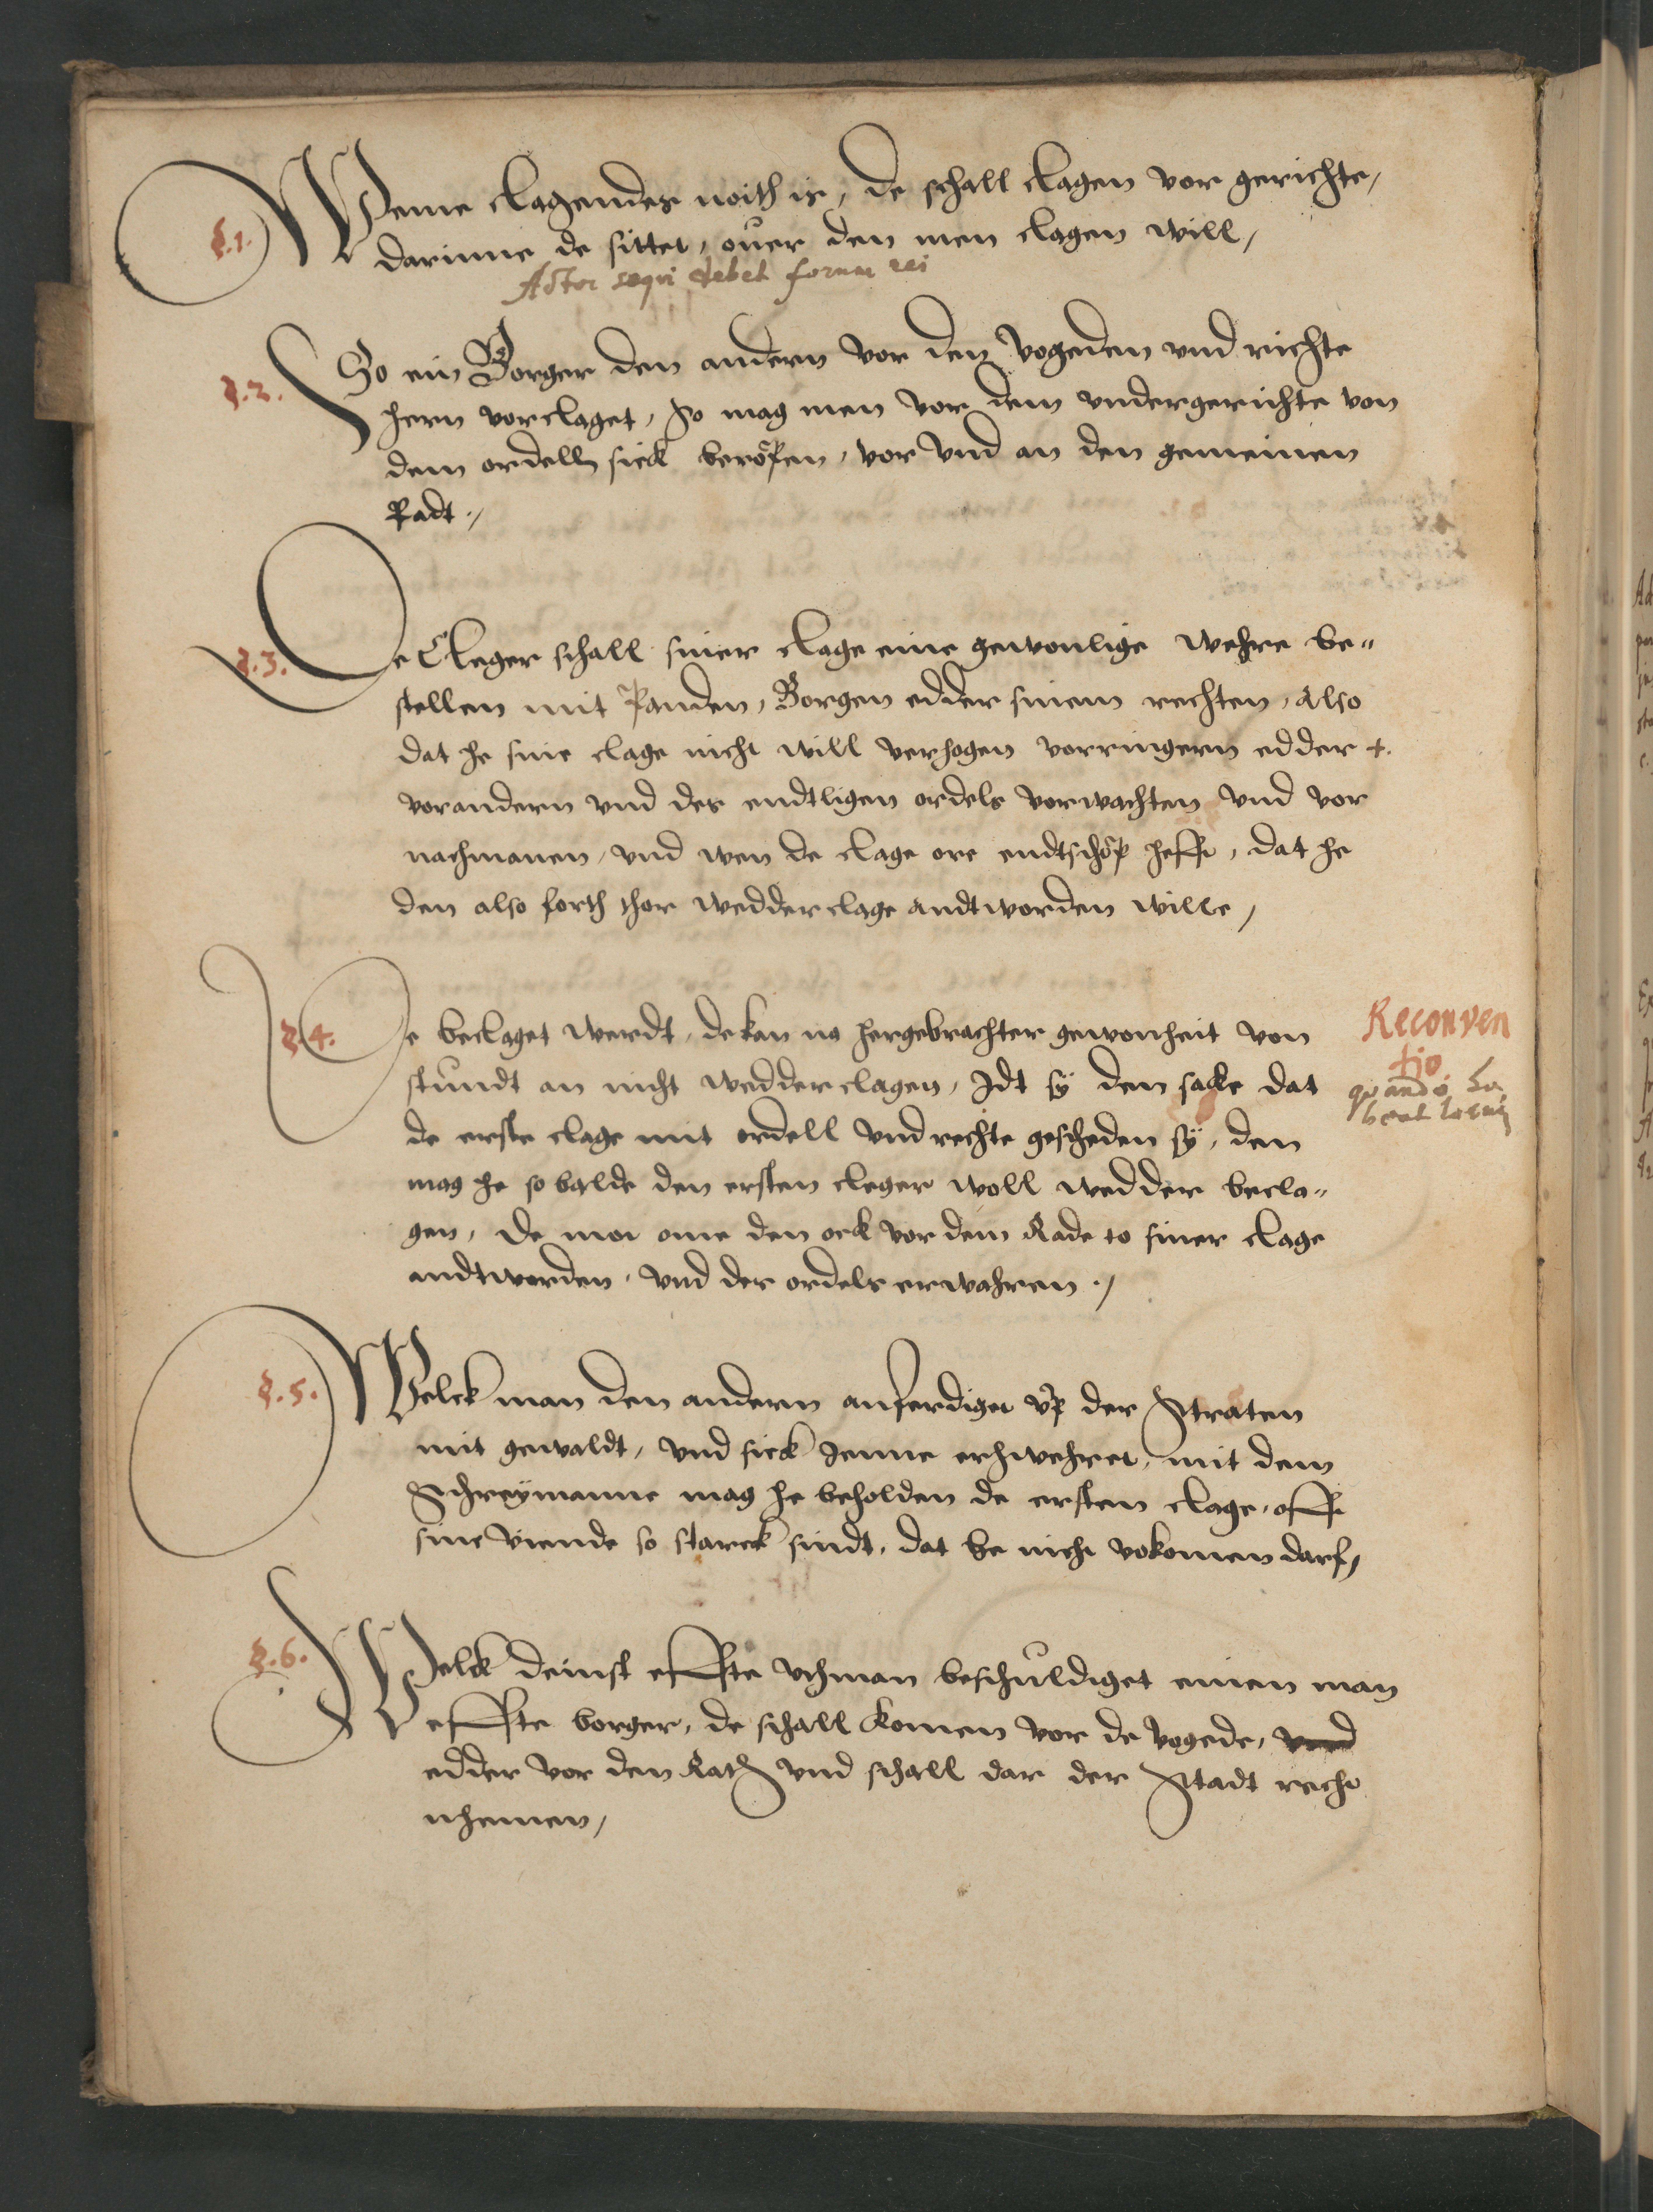 §.1. Weme clagendes noith is, de schall clagen vor gerichte,
darinne de sittet, ouer den men clagen will,
Actor seqvi debet forum rei
§.2. So ein Borger den andern vor den vogeden vnd richte
hern vorclaget, So mag men vor dem vndergerichte von
dem ordell sick beröpen, vor vnd an den gemeinen
Radt.,
§.3. De Cleger schall siner clage eine gewonlige wehre be„
stellen mit Panden, Borgen edder sinem rechten, Also
dat he sine clage nicht will verhogen vorringern edder +.
vorandern vnd des endtligen ordels vorwachten vnd vor
nachmanen, vnd wen de clage ore endtschöp hefft, dat he
den also forth thor wedderclage andtworden wille,
§.4. De beclaget werdt, de kan na hergebrachter gewonheit von
stundt an nicht wedderclagen, Idt sÿ den sacke dat
de erste clage mit ordell vnd rechte gescheden sÿ, den
mag he so balde den ersten cleger woll wedder becla„
gen, de mot ome den ock vor dem Rade to siner clage
andtworden, vnd des ordels erwahren.,
Reconven
tio
qvando ha
beat locum
§.5. Welck man den andern anferdiget vp der Straten
mit gewaldt, vnd sick Jenne erhwehret, mit dem
Schreÿmanne mag he beholden de ersten clage, offt
sine viende so starck sindt, dat he nicht vokomen darf,
§.6. Welck deinst effte vhman beschuldiget einen man
effte borger, de schall komen vor de vogede, vnd
edder vor den Rath vnd schall dar der Stadt recht
nhemen,